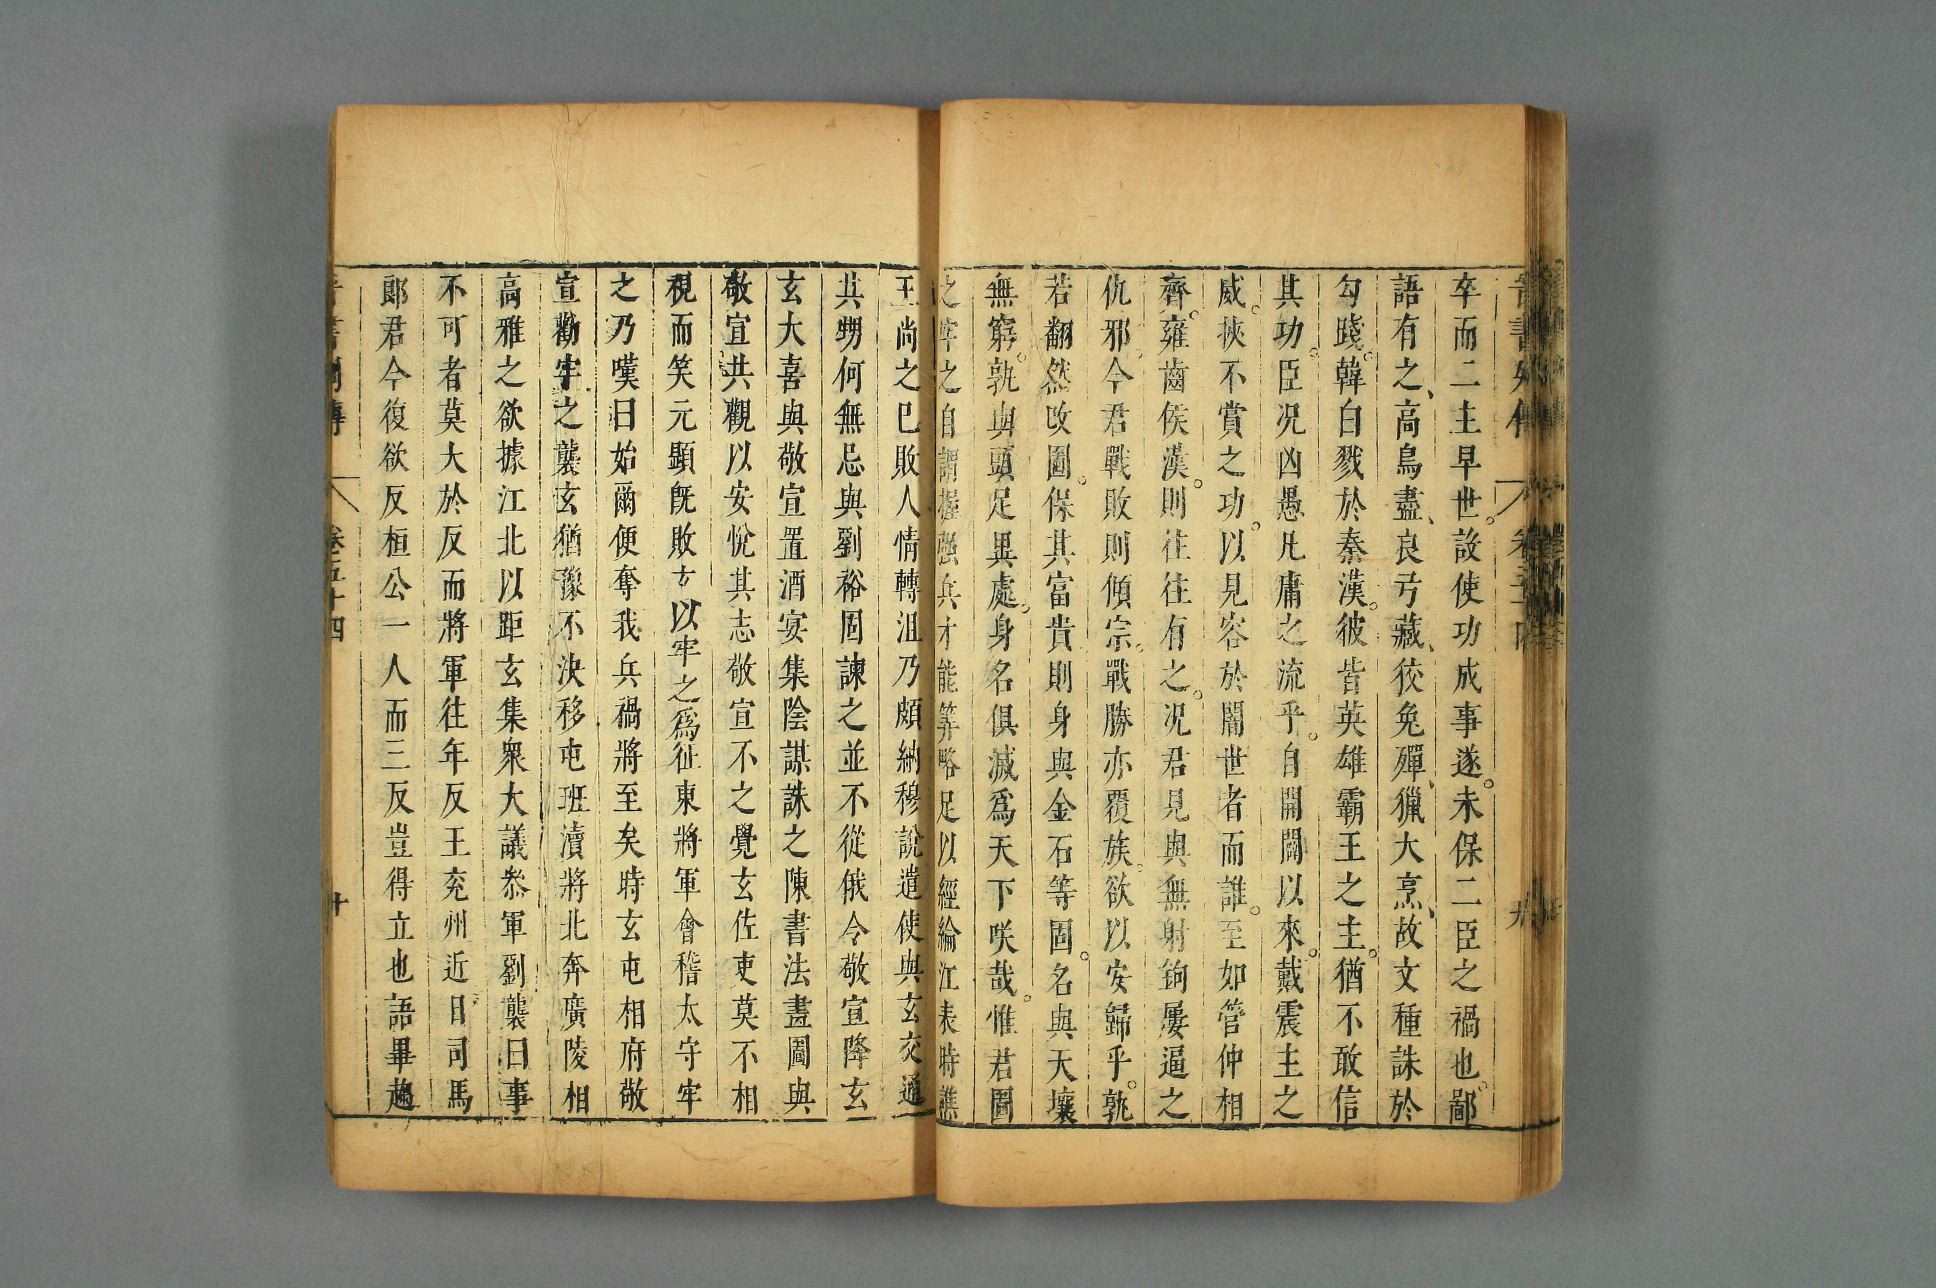 卒而二主早世。設使功成事遂。未保二臣之禍也。鄙
語有之、高鳥盡、良弓藏、狡兔殫、獵犬烹、故文種誅於
勾踐。韓白戮於秦漢。彼皆英雄霸王之主。猶不敢信
其功。臣况凶愚凡庸之流乎。自開闢以來。戴震主之
威。挾不賞之功。以見容於闇世者而誰。至如管仲相
齊。雍齒侯漢。則往往有之。况君見與無射鉤屢逼之
仇邪。今君戰敗則傾宗。戰勝亦覆族。欲以安歸乎。孰
若翻然改圖。保其富貴則身與金石等固。名與天壤
無窮。孰與頭足異處。身名俱滅爲天下咲哉。惟君圖
之牢之自謂握强兵才能算略足以經綸江表時譙
王尚之已敗人情轉沮乃頗納穆說遣使與玄交通
其甥何無忌與劉裕固諫之並不從俄令敬宣降玄
玄大喜與敬宣置酒宴集陰謀誅之陳書法畫圖與
敬宣共觀以安悅其志敬宣不之覺玄佐吏莫不相
視而笑元顯旣敗玄以牢之爲征東將軍會稽太守牢
之乃嘆曰始爾便奪我兵禍將至矣時玄屯相府敬
宣勸牢之襲玄猶豫不決移屯班瀆將北奔廣陵相
高雅之欲據江北以距玄集衆大議叅軍劉襲曰事
不可者莫大於反而將軍往年反王兗州近日司馬
郞君今復欲反桓公一人而三反豈得立也語畢趨
卷五十四 十